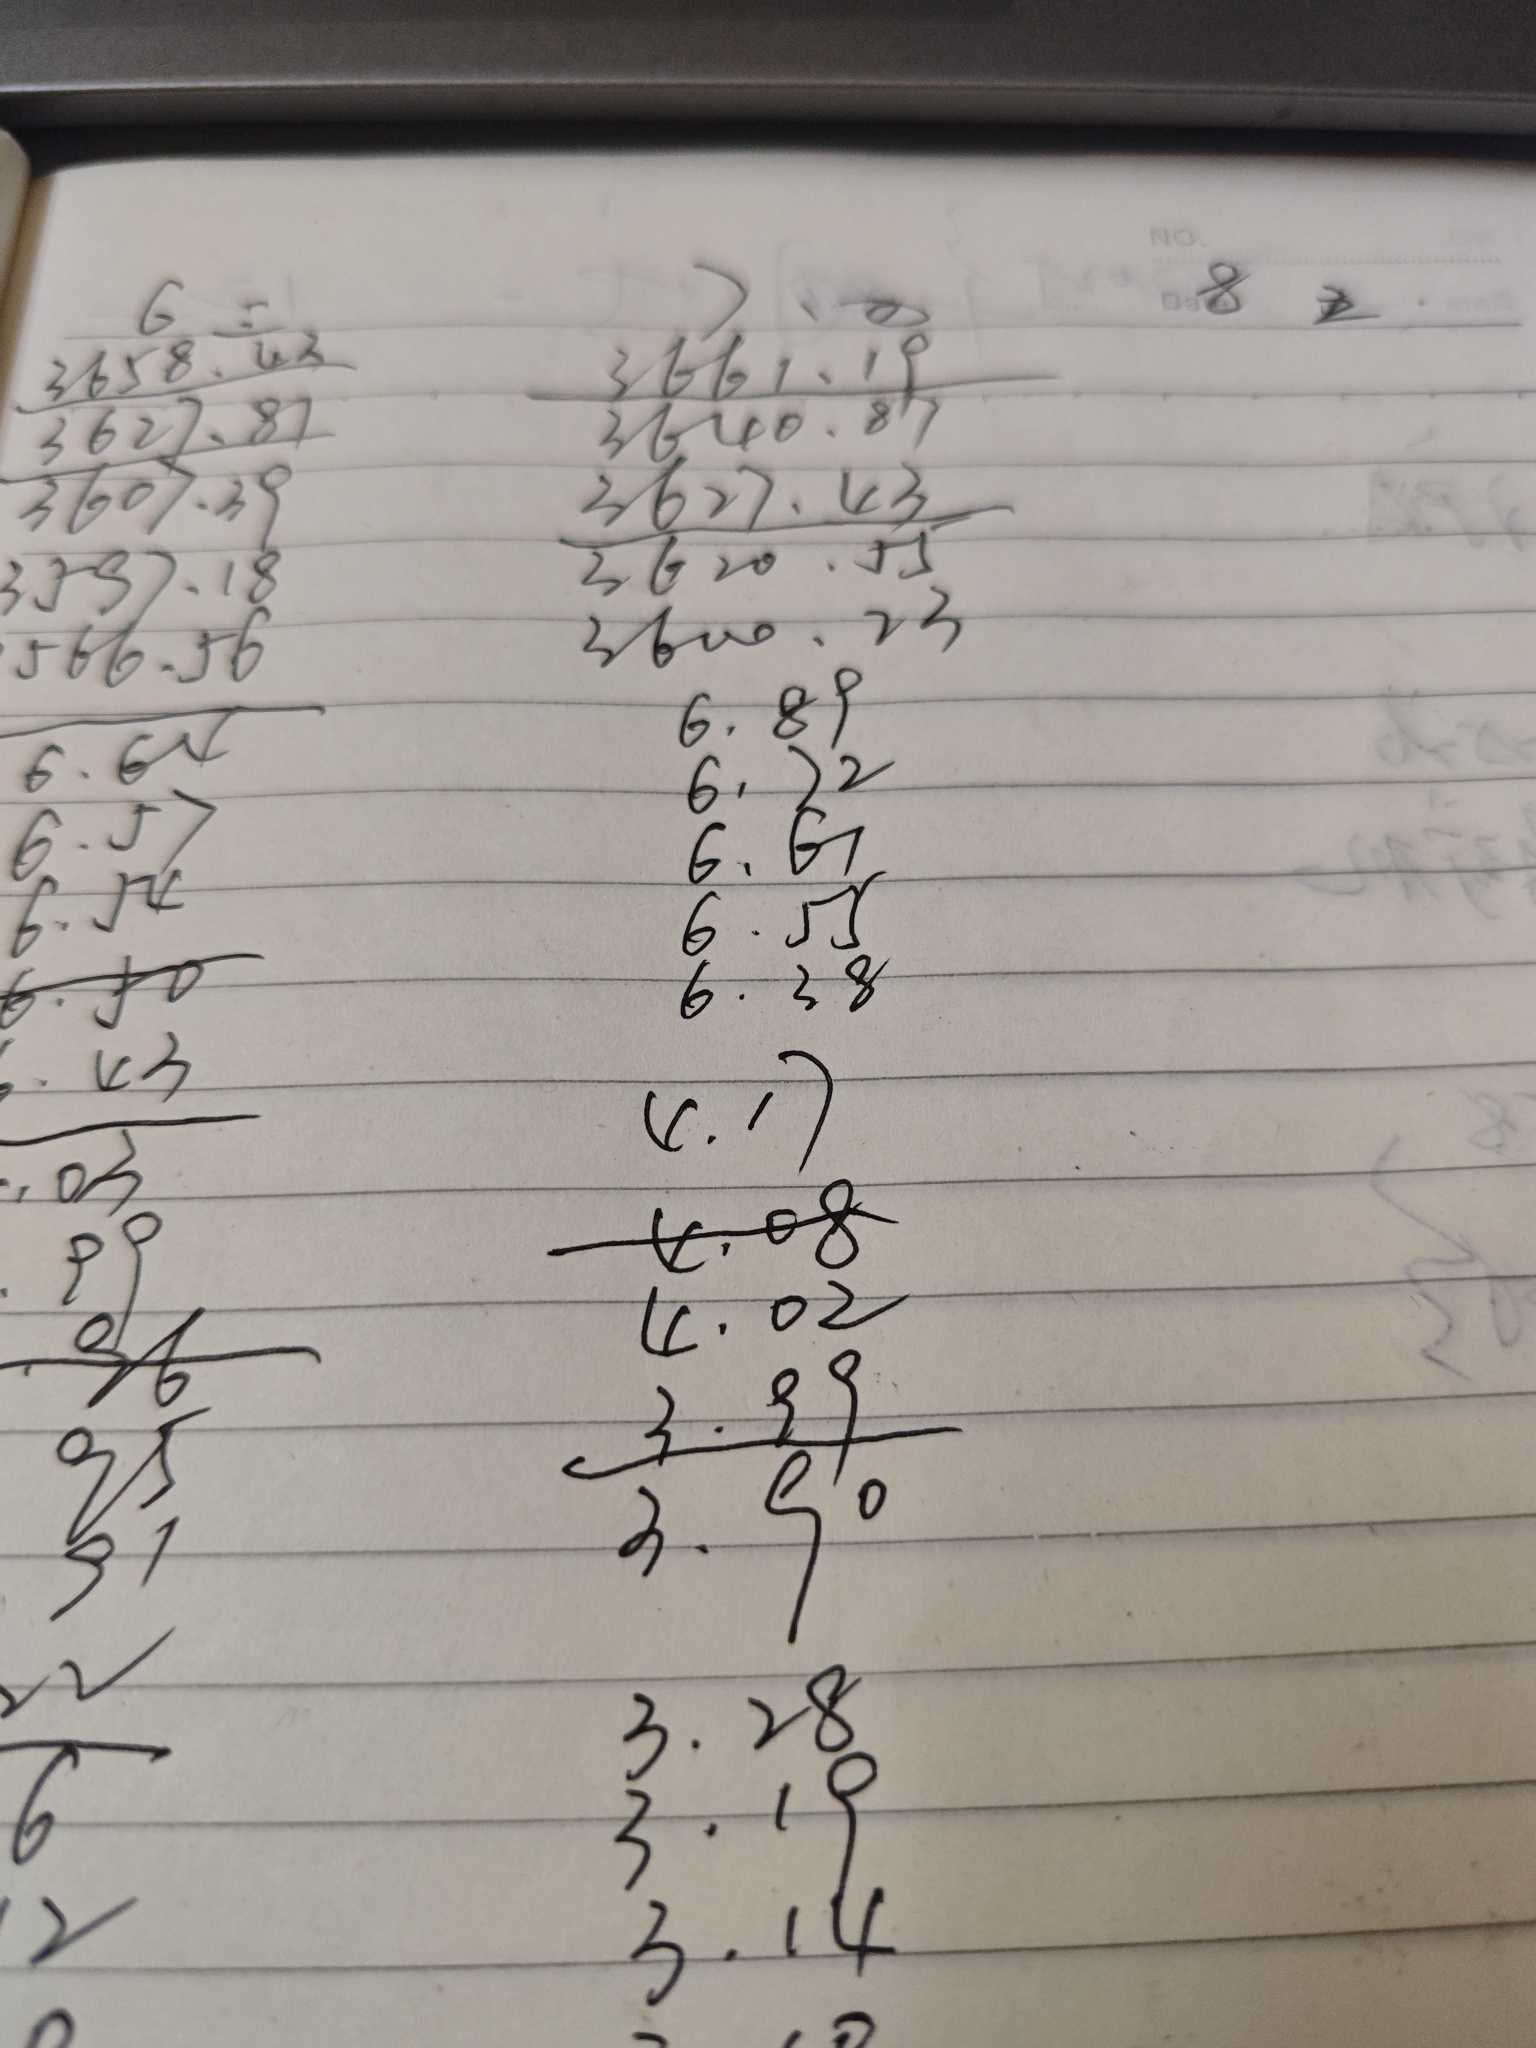 6 二
3658.43
3627.87
3607.39
3597.18
566.56
6.64
6.57
6.54
6.50
.43
.03
.99
.96
95
91
22
6
12
7.
3661.19
3640.87
3627.43
3620.55
3600.23
6.89
6.72
6.67
6.55
6.38
4.17
4.08
4.02
3.99
3.90
3.28
3.19
3.14
8 2
NO.